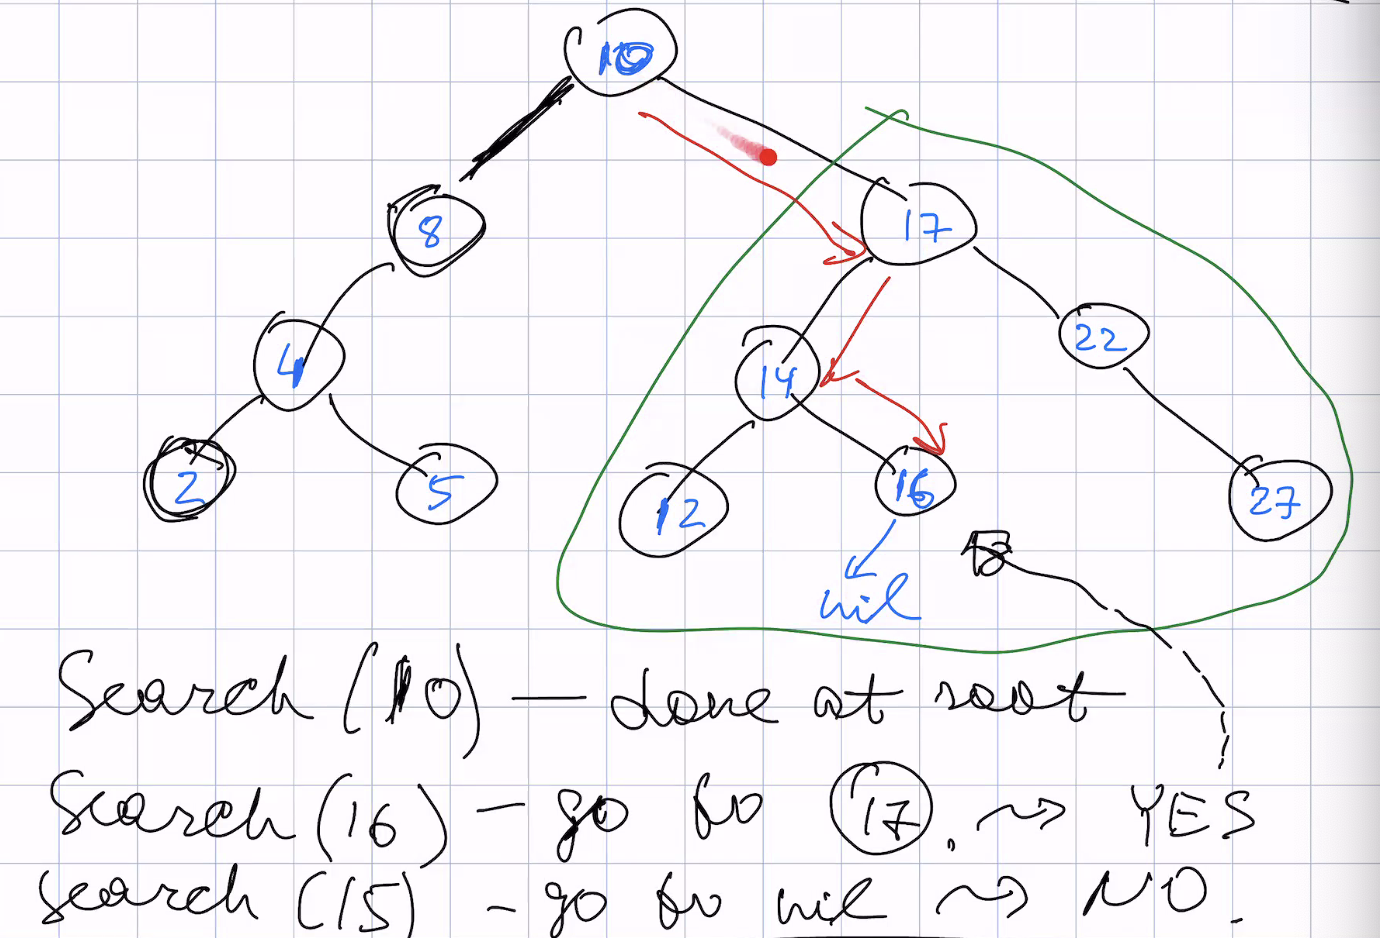 10
8
17
4
14
22
2
5
12
16
27
nil
Search (10) — done at root
Search (16) - go to 17. ~> YES
search (15) - go to nil ~> NO.